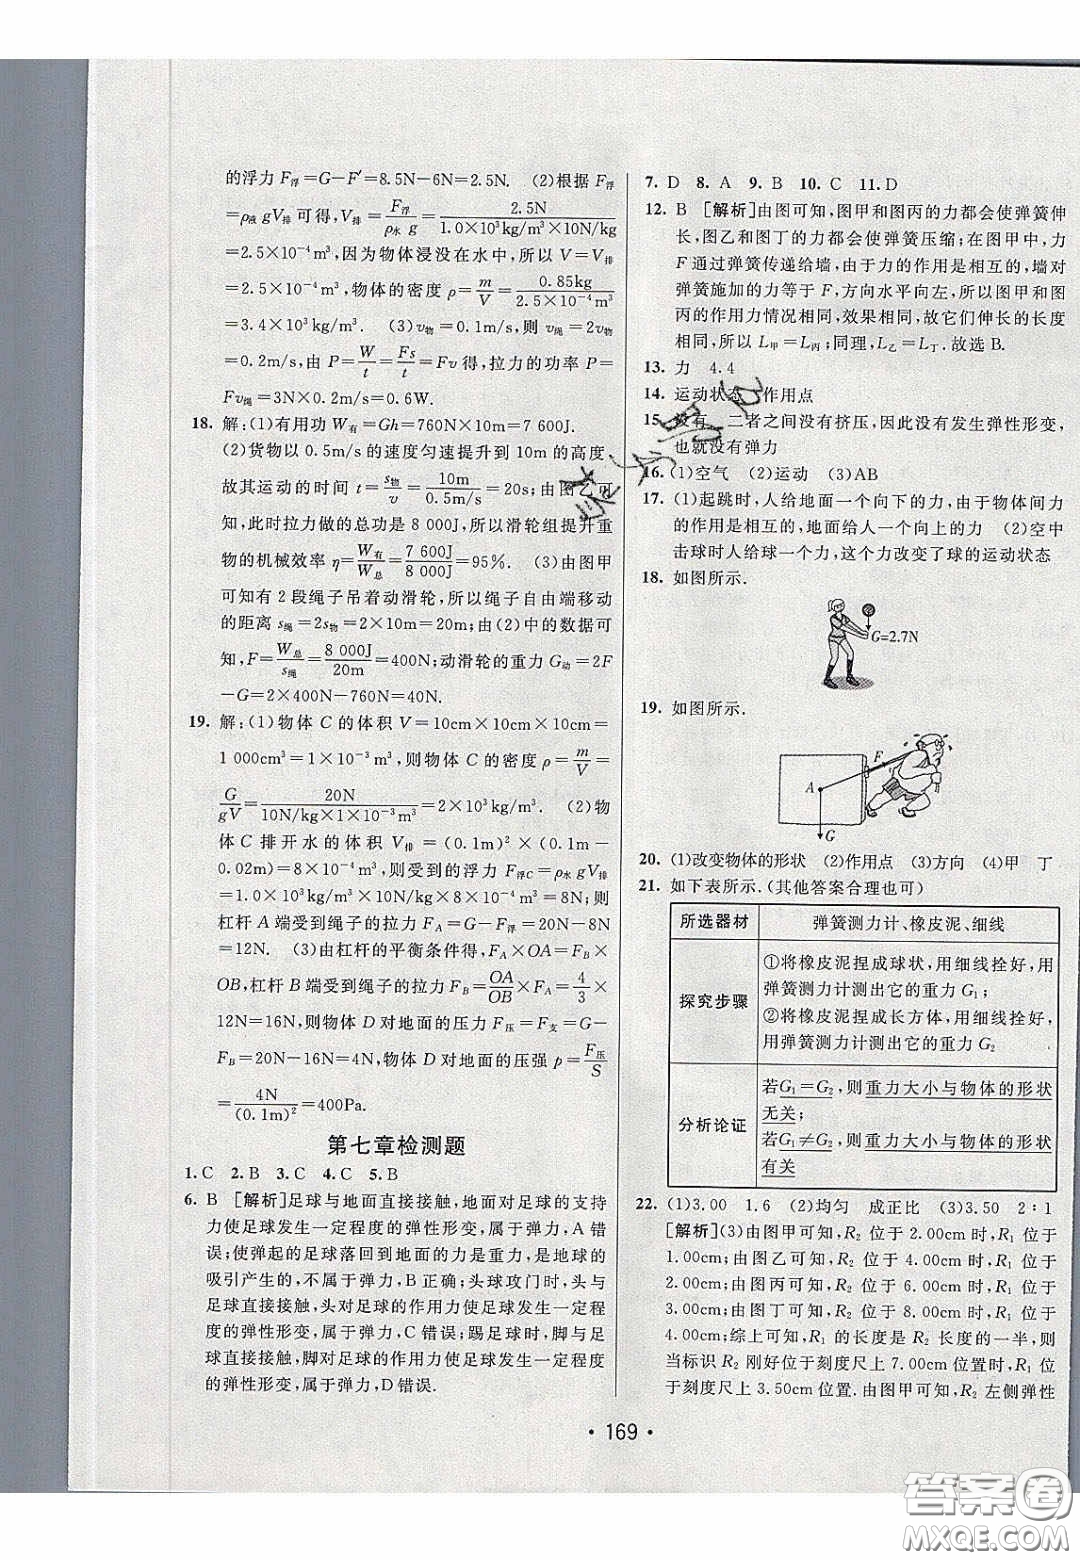 的浮力 F浮=G-F′=8.5N-6N=2.5N. (2)根据 F浮
=ρ液 gV排 可得, V排=F浮/ρ水 g=2.5N/1.0×10³kg/m³×10N/kg
=2.5×10⁻⁴m³,因为物体浸没在水中,所以 V=V排
=2.5×10⁻⁴m³,物体的密度 ρ=m/V=0.85kg/2.5×10⁻⁴m³
=3.4×10³kg/m³. (3)v物=0.1m/s,则 v绳=2v物
=0.2m/s,由 P=W/t=Fs/t=Fv 得,拉力的功率 P=
Fv绳=3N×0.2m/s=0.6W.
18. 解:(1)有用功 W有=Gh=760N×10m=7 600J.
(2)货物以 0.5m/s 的速度匀速提升到 10m 的高度,
故其运动的时间 t=s物/v=10m/0.5m/s=20s;由图乙可
知,此时拉力做的总功是 8 000J,所以滑轮组提升重
物的机械效率 η=W有/W总=7 600J/8 000J=95%. (3)由图甲
可知有 2 段绳子吊着动滑轮,所以绳子自由端移动
的距离 s绳=2s物=2×10m=20m;由(2)中的数据可
知,F=W总/s绳=8 000J/20m=400N;动滑轮的重力 G动=2F
-G=2×400N-760N=40N.
19. 解:(1)物体 C 的体积 V=10cm×10cm×10cm=
1 000cm³=1×10⁻³m³,则物体 C 的密度 ρ=m/V=
G/gV=20N/10N/kg×1×10⁻³m³=2×10³kg/m³. (2)物
体 C 排开水的体积 V排=(0.1m)²×(0.1m-
0.02m)=8×10⁻⁴m³,则受到的浮力 F浮C=ρ水 gV排
=1.0×10³kg/m³×10N/kg×8×10⁻⁴m³=8N;则
杠杆 A 端受到绳子的拉力 FA=G-F浮=20N-8N
=12N. (3)由杠杆的平衡条件得, FA×OA=FB×
OB,杠杆 B 端受到绳子的拉力 FB=OA/OB×FA=4/3×
12N=16N,则物体 D 对地面的压力 F压=F支=G-
FB=20N-16N=4N,物体 D 对地面的压强 p=F压/S
=4N/(0.1m)²=400Pa.
第七章检测题
1.C 2.B 3.C 4.C 5.B
6. B [解析]足球与地面直接接触,地面对足球的支持
力使足球发生一定程度的弹性形变,属于弹力,A 错
误;使弹起的足球落回到地面的力是重力,是地球的
吸引产生的,不属于弹力,B 正确;头球攻门时,头与
足球直接接触,头对足球的作用力使足球发生一定程
度的弹性形变,属于弹力,C 错误;踢足球时,脚与足
球直接接触,脚对足球的作用力使足球发生一定程度
的弹性形变,属于弹力,D 错误.
7. D 8. A 9. B 10. C 11. D
12. B [解析]由图可知,图甲和图丙的力都会使弹簧伸
长,图乙和图丁的力都会使弹簧压缩;在图甲中,力
F 通过弹簧传递给墙,由于力的作用是相互的,墙对
弹簧施加的力等于 F,方向水平向左,所以图甲和图
丙的作用力情况相同,效果相同,故它们伸长的长度
相同,所以 L甲=L丙;同理,L乙=L丁.故选 B.
13. 力 4.4
14. 运动状态 作用点
15. 没有 二者之间没有挤压,因此没有发生弹性形变,
也就没有弹力
16. (1)空气 (2)运动 (3)AB
17. (1)起跳时,人给地面一个向下的力,由于物体间力
的作用是相互的,地面给人一个向上的力 (2)空中
击球时人给球一个力,这个力改变了球的运动状态
18. 如图所示.
G=2.7N
19. 如图所示.
F
A
G
20. (1)改变物体的形状 (2)作用点 (3)方向 (4)甲 丁
21. 如下表所示.(其他答案合理也可)
所选器材 弹簧测力计、橡皮泥、细线
探究步骤
①将橡皮泥捏成球状,用细线拴好,用
弹簧测力计测出它的重力 G₁;
②将橡皮泥捏成长方体,用细线拴好,
用弹簧测力计测出它的重力 G₂
分析论证
若G₁=G₂,则重力大小与物体的形状
无关;
若G₁≠G₂,则重力大小与物体的形状
有关
22. (1)3.00 1.6 (2)均匀 成正比 (3)3.50 2∶1
[解析](3)由图甲可知,R₂ 位于 2.00cm 时,R₁ 位于
1.00cm;由图乙可知,R₂ 位于 4.00cm 时,R₁ 位于
2.00cm;由图丙可知,R₂ 位于 6.00cm 时,R₁ 位于
3.00cm;由图丁可知,R₂ 位于 8.00cm 时,R₁ 位于
4.00cm;综上可知,R₁ 的长度是 R₂ 长度的一半,则
当标识 R₂ 刚好位于刻度尺上 7.00cm 位置时,R₁ 位
于刻度尺上 3.50cm 位置.由图甲可知,R₂ 左侧弹性
• 169 •
答案圈
MXQE.COM